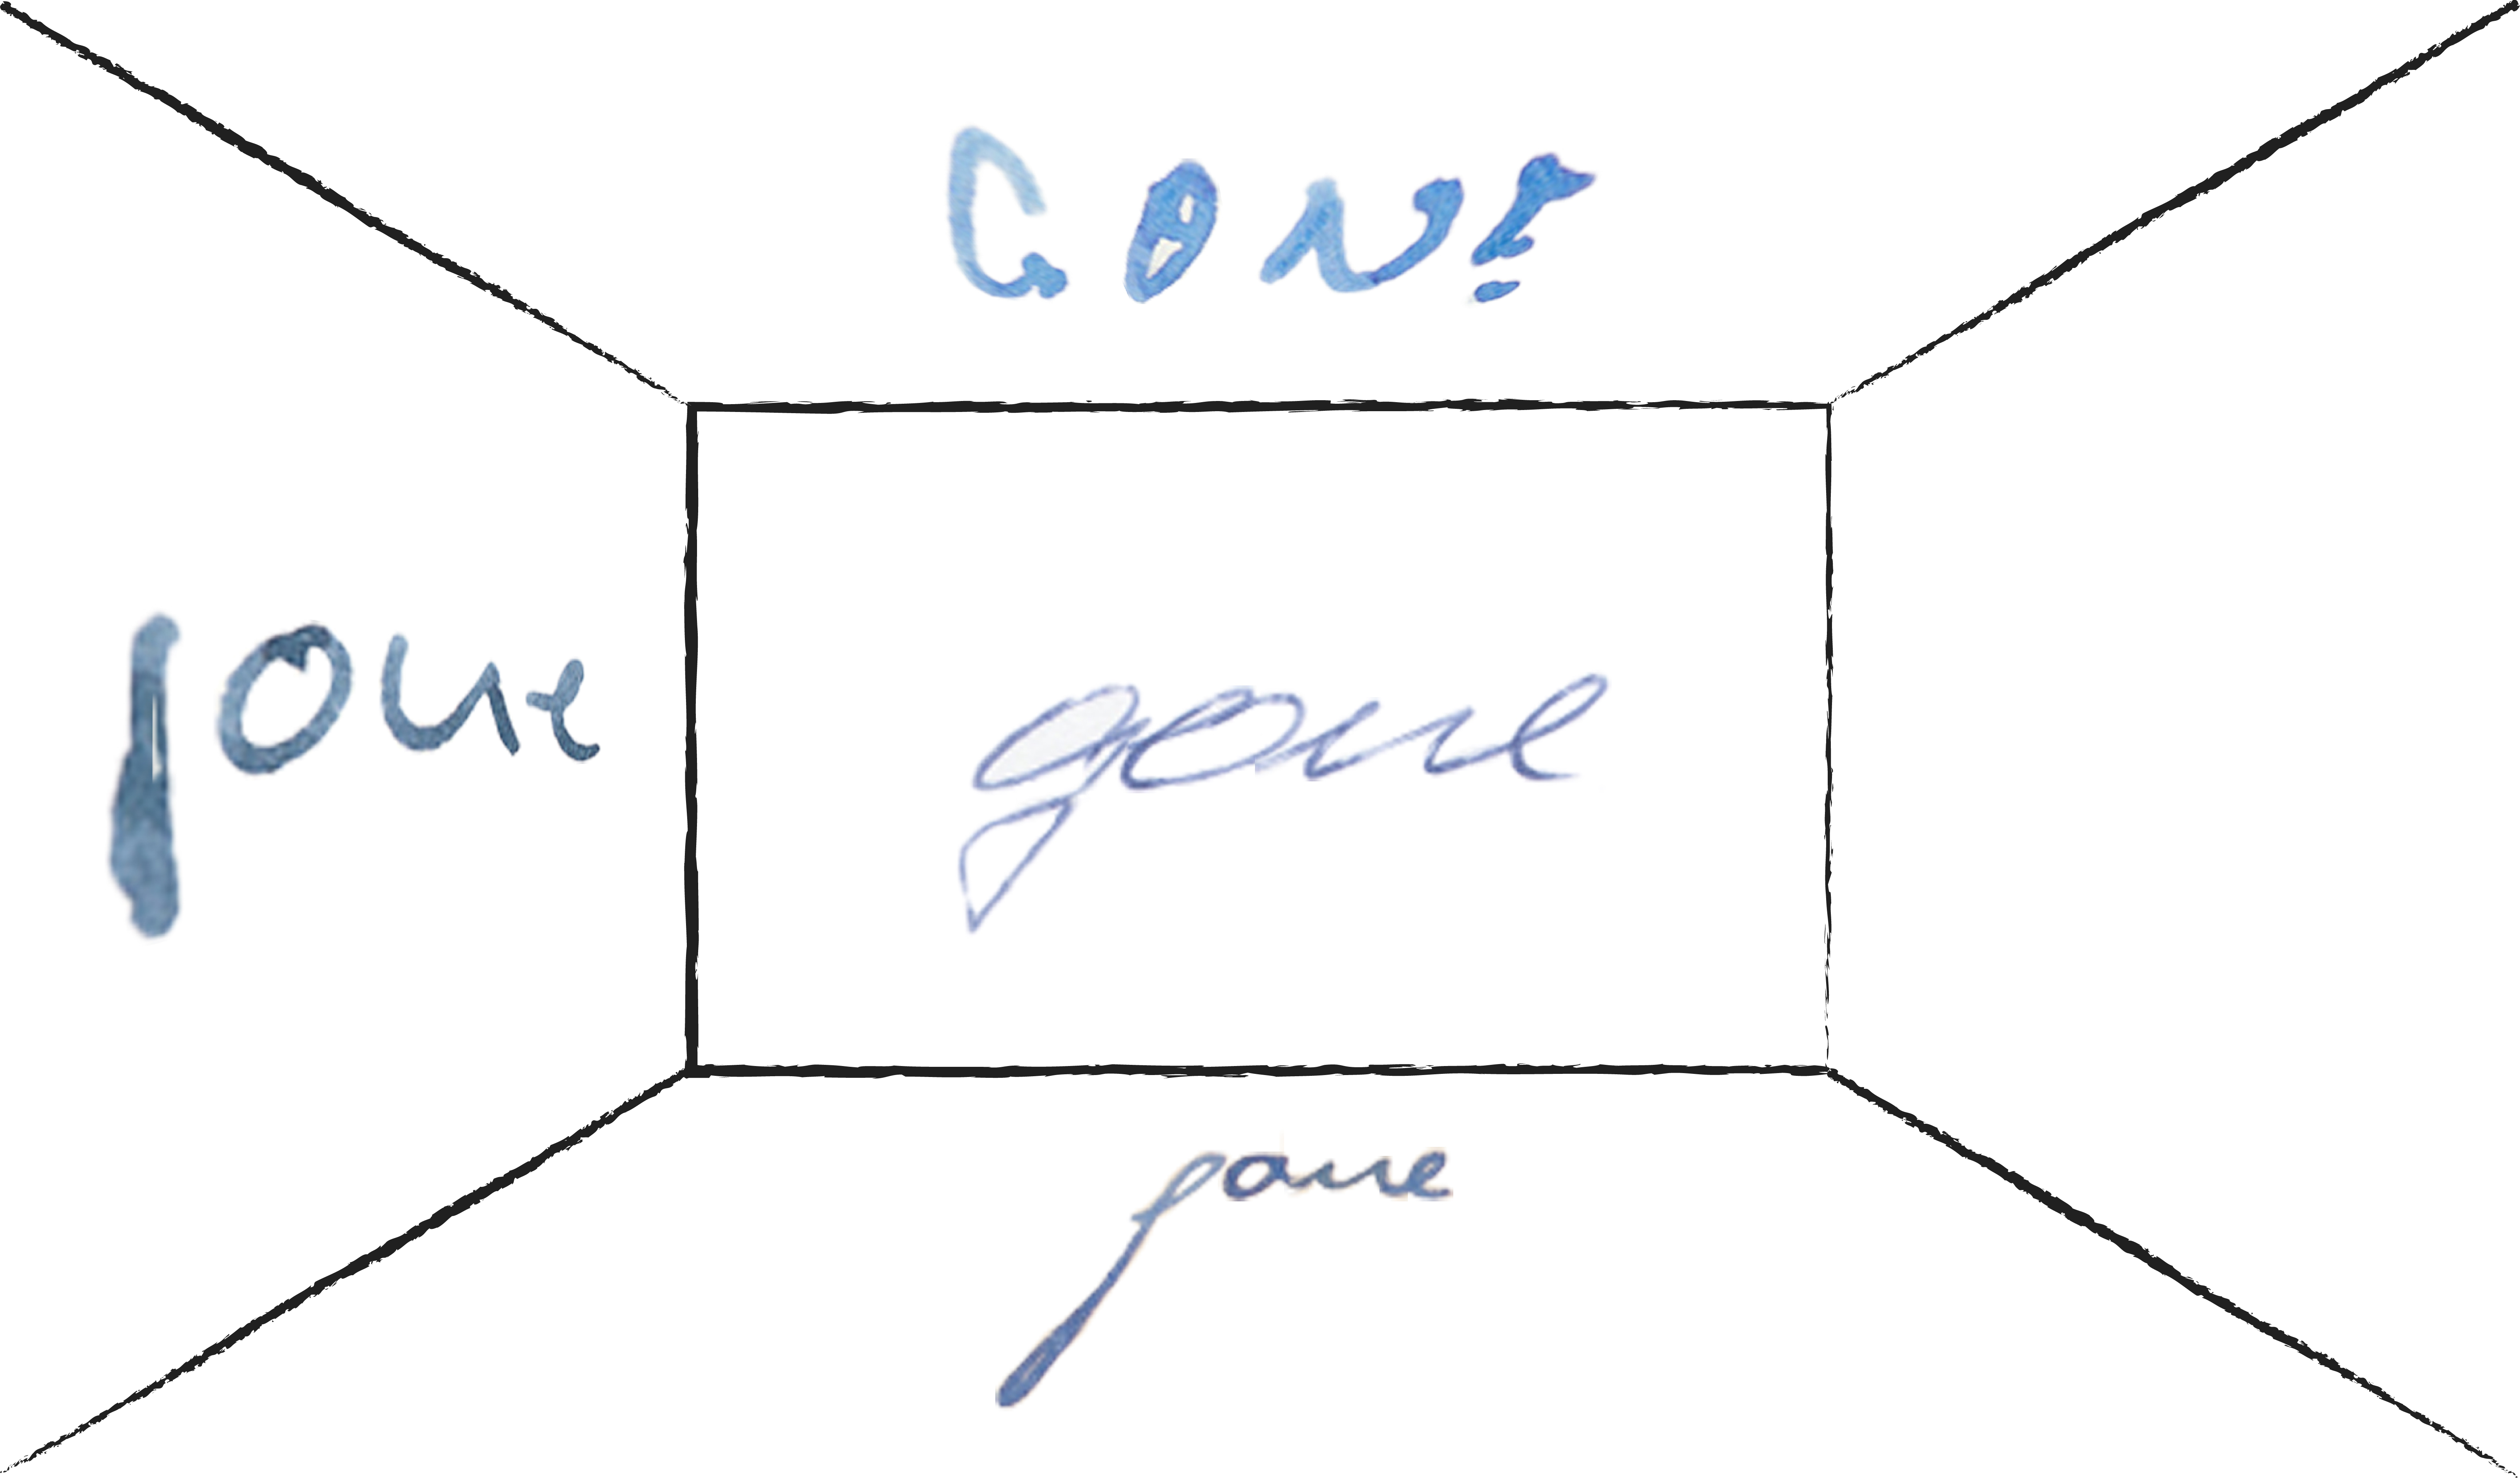 gone
gone
gone
gone